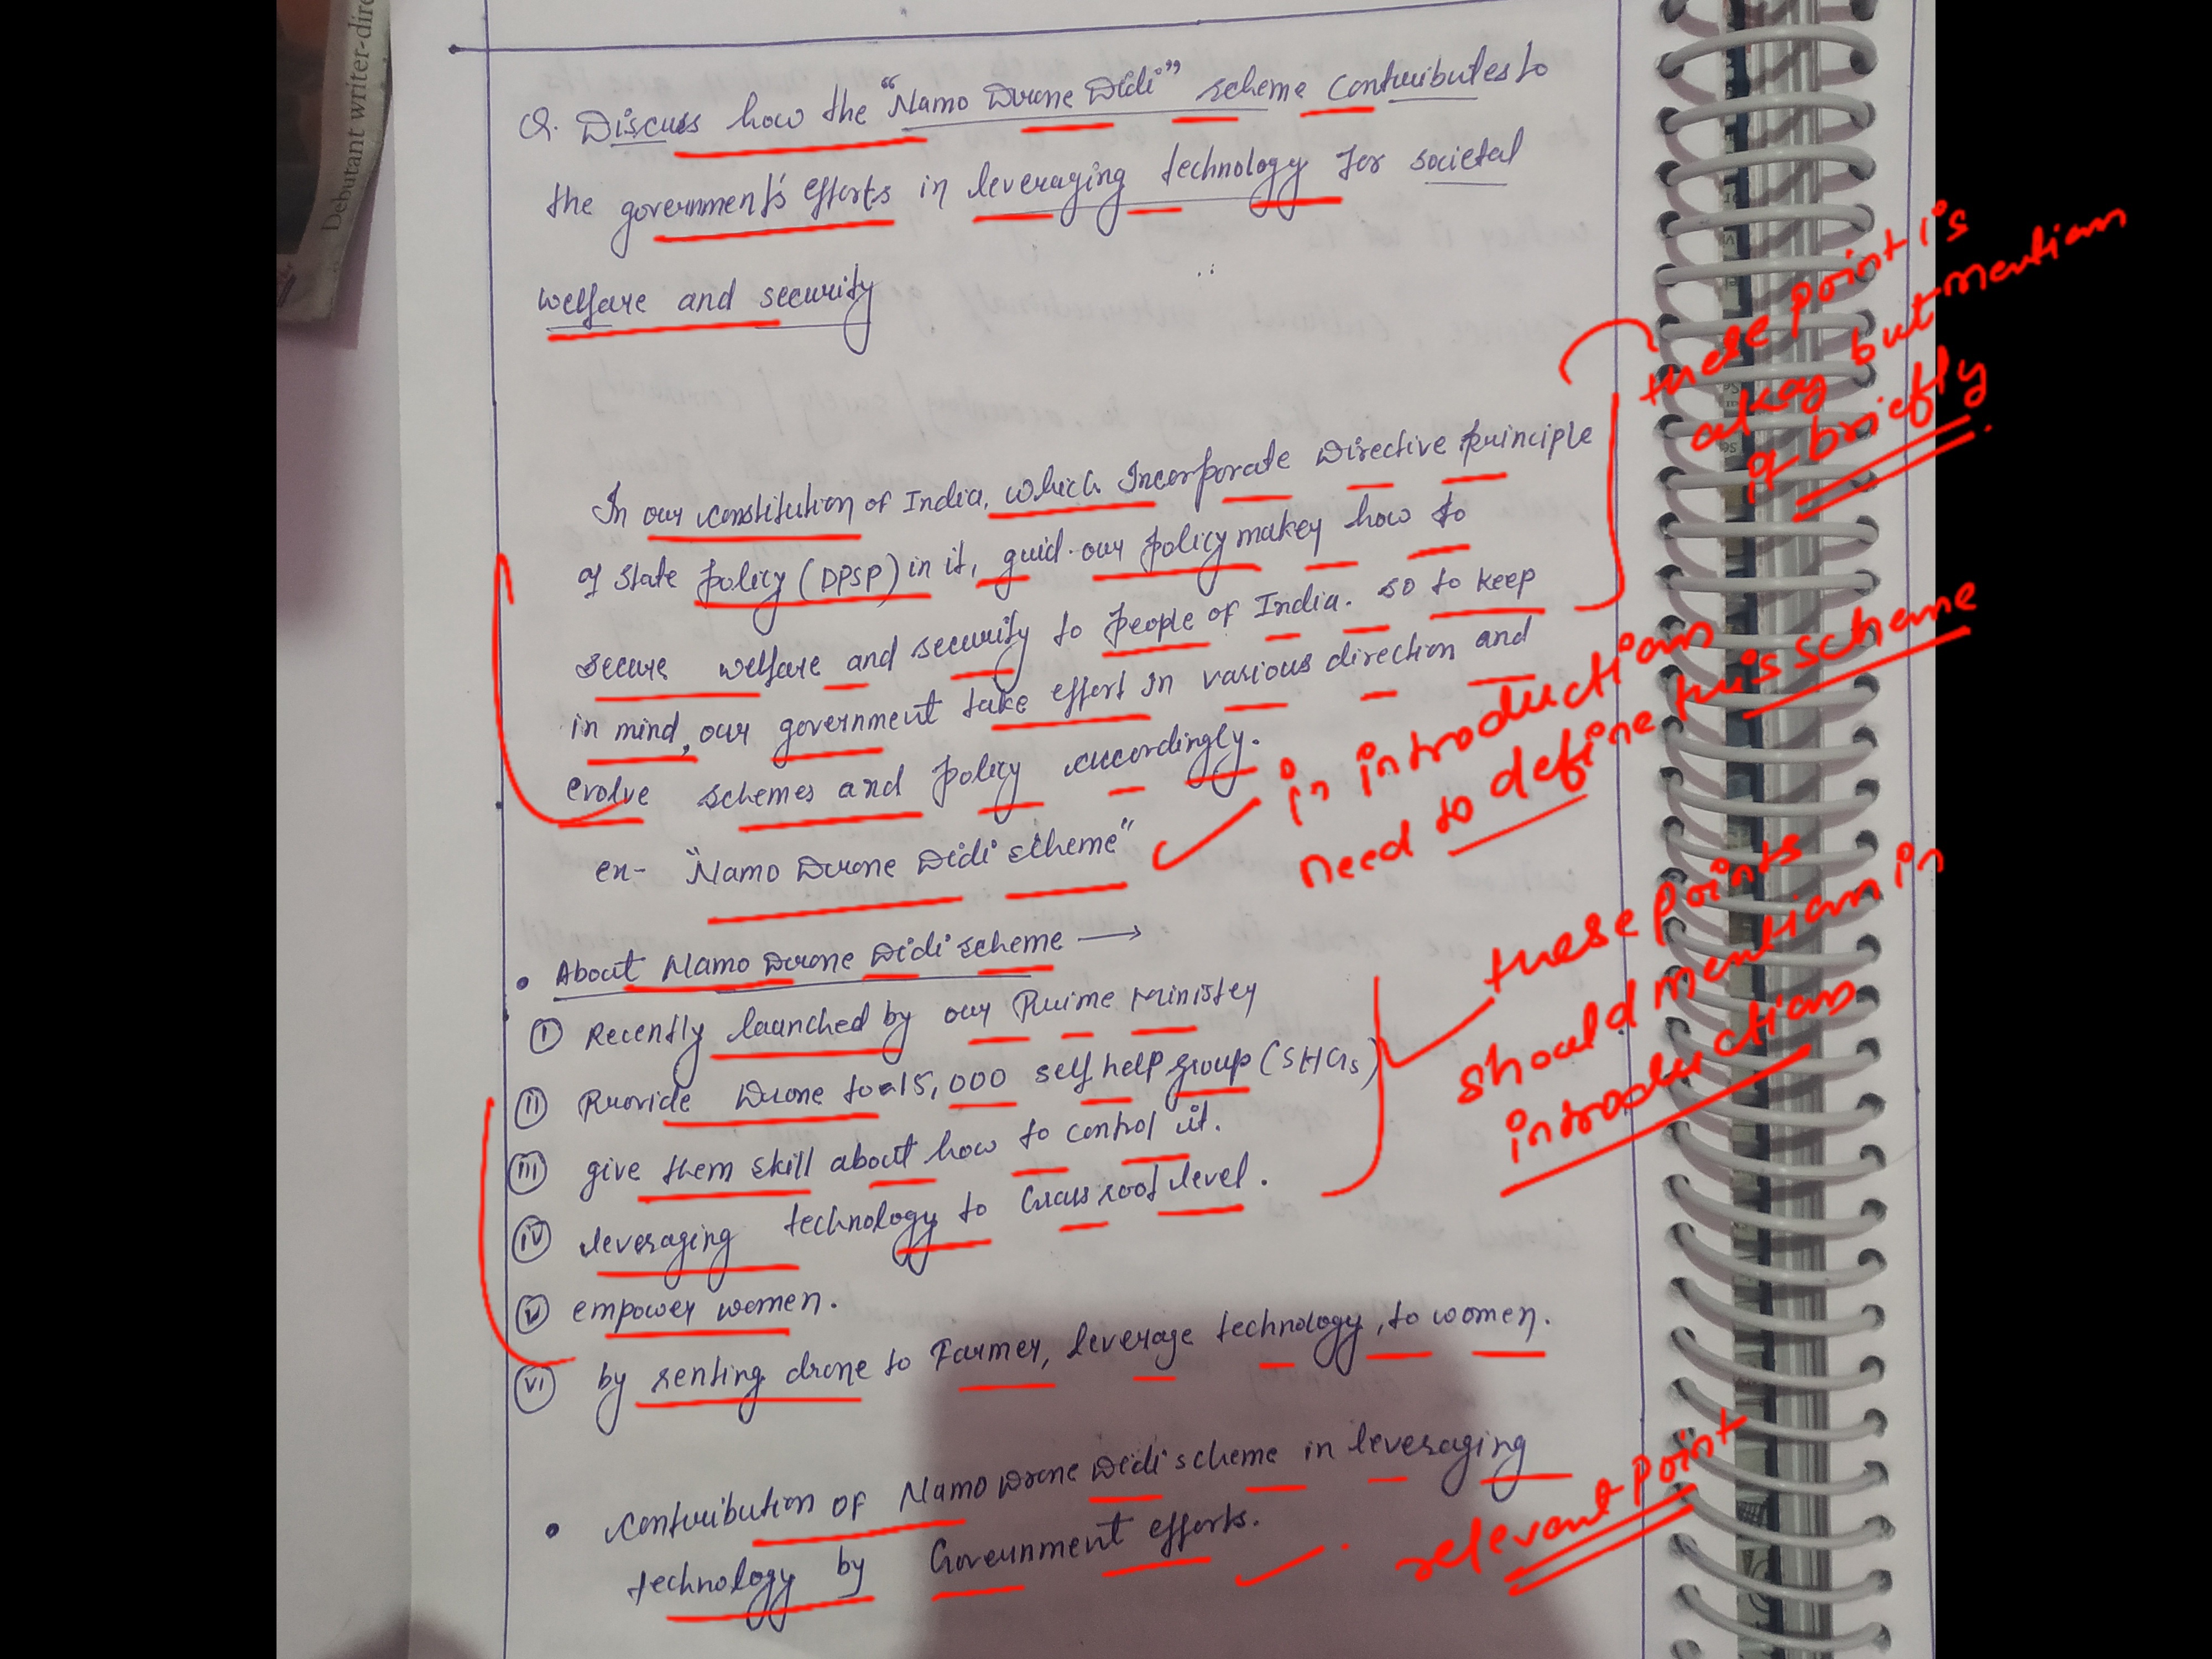 Debutant writer-dire
Q. Discuss how the "Namo Drone Didi" scheme contributes to
the government's efforts in leveraging technology for societal
welfare and security
these point is
okay but mention
it briefly
In our constitution of India, which Incorporate Directive principle
of State policy (DPSP) in it, guid our policy maker how to
secure welfare and security to people of India. so to keep
in mind, our government take effort in various direction and
evolve schemes and policy accordingly.
ex- "Namo Drone Didi scheme"
in introduction
need to define this scheme
• About Namo Drone Didi scheme →
I Recently launched by our Prime Minister
II Provide Drone to 15,000 self help group (SHGs)
III give them skill about how to control it.
IV leveraging technology to Grass root level.
V empower women.
VI by renting drone to Farmer, leverage technology, to women.
these points
should mention in
introduction
• Contribution of Namo Drone Didi scheme in leveraging
technology by Government efforts.
relevant point